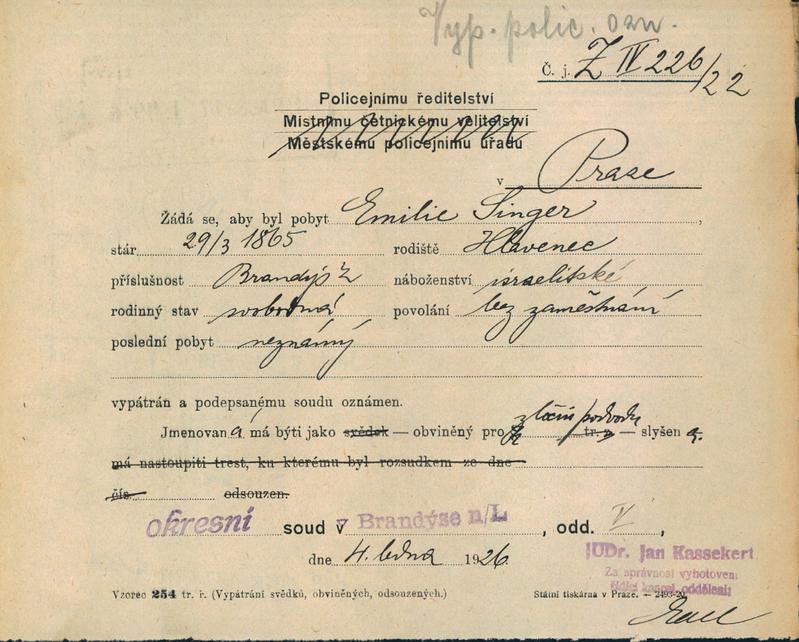 Vyp. polic. ozn.
Č. j. Z IV 226/22
Policejnímu ředitelství
Místnímu četnickému velitelství
Městskému policejnímu úřadu
v Praze
Žádá se, aby byl pobyt Emilie Singer,
stár 29/3 1865 rodiště Hlavenec
příslušnost Brandýs n/L náboženství israelitské
rodinný stav svobodná povolání bez zaměstnání
poslední pobyt neznámý
vypátrán a podepsanému soudu oznámen.
Jmenovaná má býti jako svědek — obviněný pro zločin podvodu tr. z — slyšen a.
má nastoupiti trest, ku kterému byl rozsudkem ze dne
čís. odsouzen.
okresní soud v Brandýse n/L, odd. V,
dne 4. ledna 1926
JUDr. Jan Kassekert
Za správnost vyhotovení
řídící kancel. oddělení:
Vzorec 254 tr. ř. (Vypátrání svědků, obviněných, odsouzených.) Státní tiskárna v Praze. — 2493-20